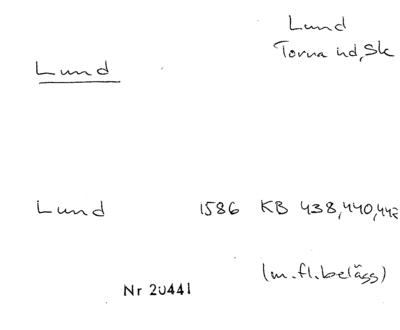 Lund
Torna hd, Sk
Lund
Lund 1586 KB 438,440,442
(m.fl.belägg)
Nr 20441